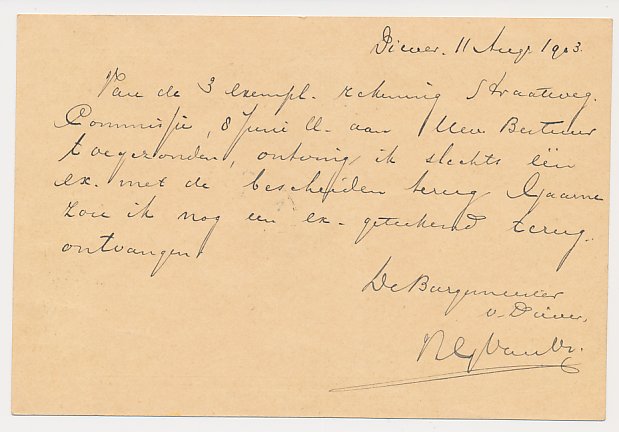 Diever. 11 Aug. 1903.
Van de 3 exempl. rekening Straatweg.
Commissie, 8 Juni ll. aan Uw Bestuur
toegezonden, ontving ik slechts één
ex. met de bescheiden terug. Gaarne
zou ik nog een ex. geteekend terug
ontvangen.
De Burgemeester
v. Diever,